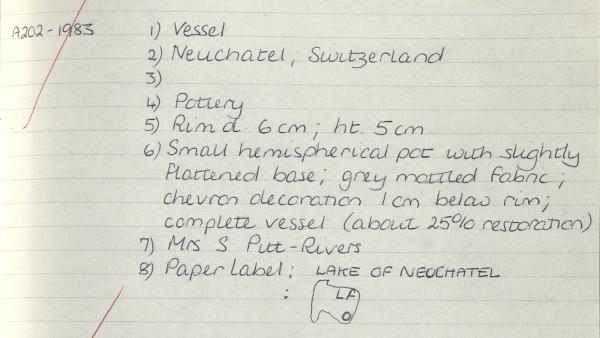 A202-1983 1) Vessel
2) Neuchatel, Switzerland
3)
4) Pottery
5) Rim d. 6cm; ht. 5cm
6) Small hemispherical pot with slightly
flattened base; grey mottled fabric;
chevron decoration 1cm below rim;
complete vessel (about 25% restoration)
7) Mrs S Pitt-Rivers
8) Paper label: LAKE OF NEUCHATEL
: LF
O